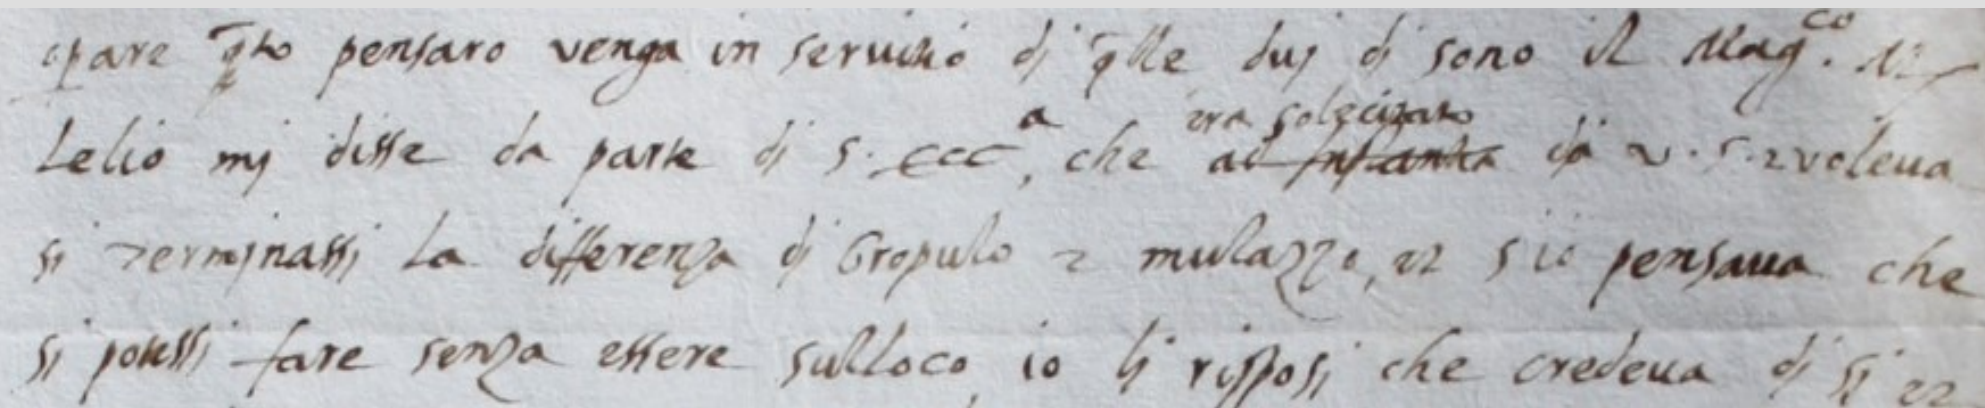 opare q̄sto pensaro venga in servitio dj q̄lle duj dj sono il Mag.co Mr
Lelio mj disse da parte dj S. Ecca, che era solecitato ad instantia da v. S. et voleva
si terminassj la differenza dj Gropulo et mulazzo, et s'io pensava che
si potessi fare senza essere sulloco, io lj rispposj che credeva dj sj et